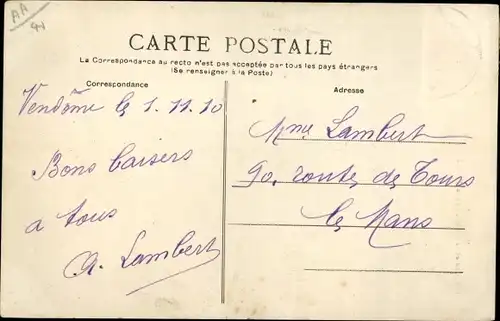 AA
41
CARTE POSTALE
La Correspondance au recto n'est pas acceptée par tous les pays étrangers
(Se renseigner à la Poste)
Correspondance
Adresse
Vendôme le 1.11.10
Bons baisers
a tous
A. Lambert
Mme Lambert
90. routes de Tours
le Mans